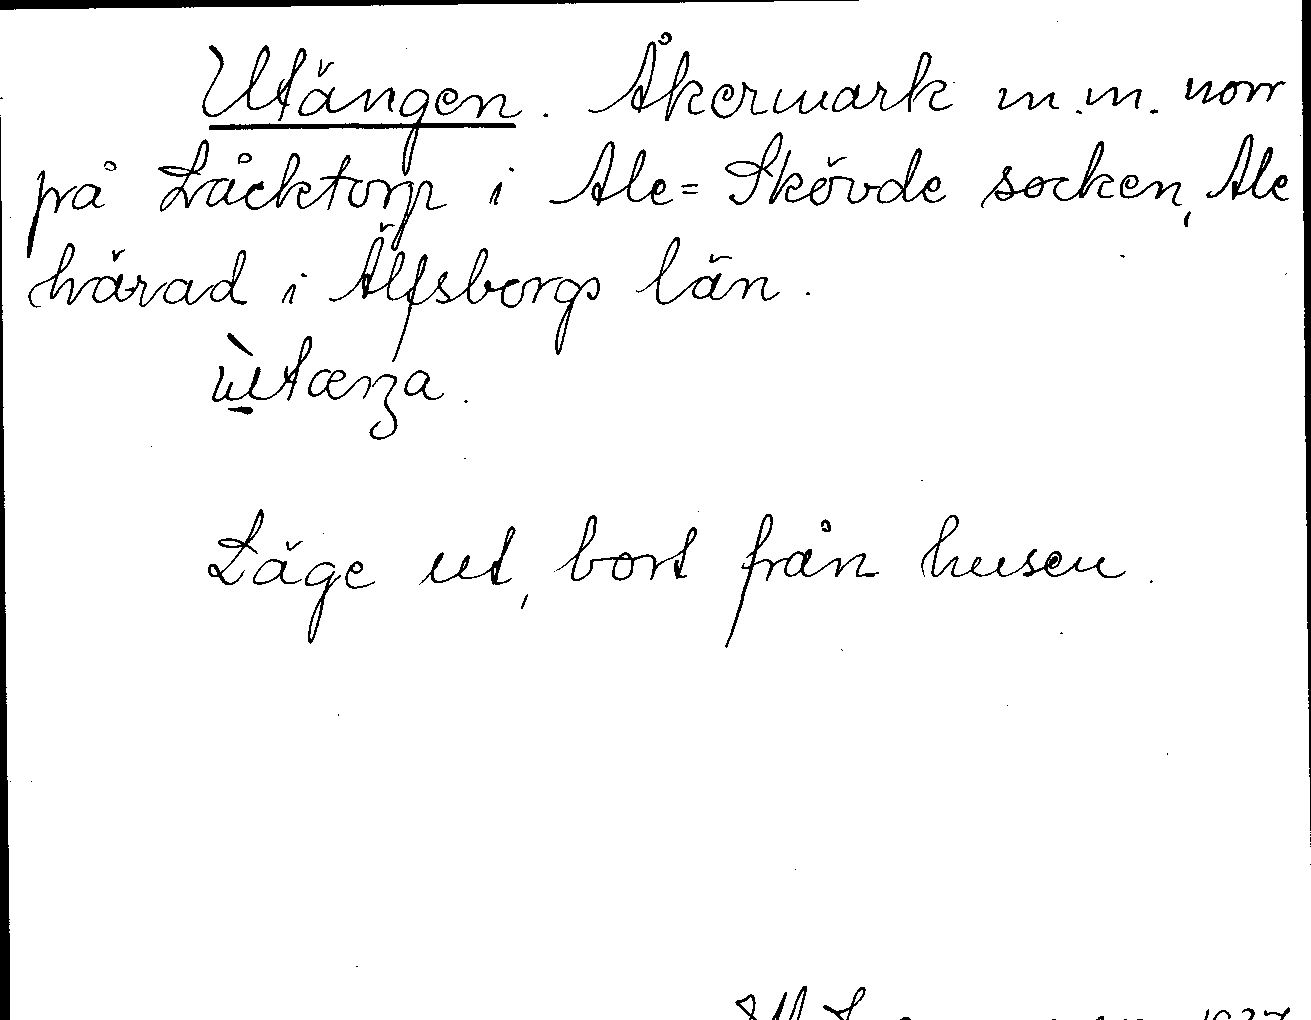 Utängen. Åkermark m.m. norr
på Låcktorp i Ale=Skövde socken, Ale
härad i Älfsborgs län.
ùtæŋa.
Läge ut, bort från husen.